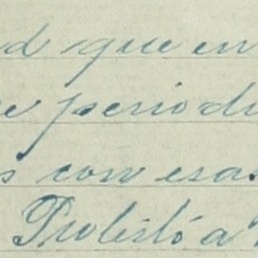 d que en
e periodi
s con esa
Protestó a